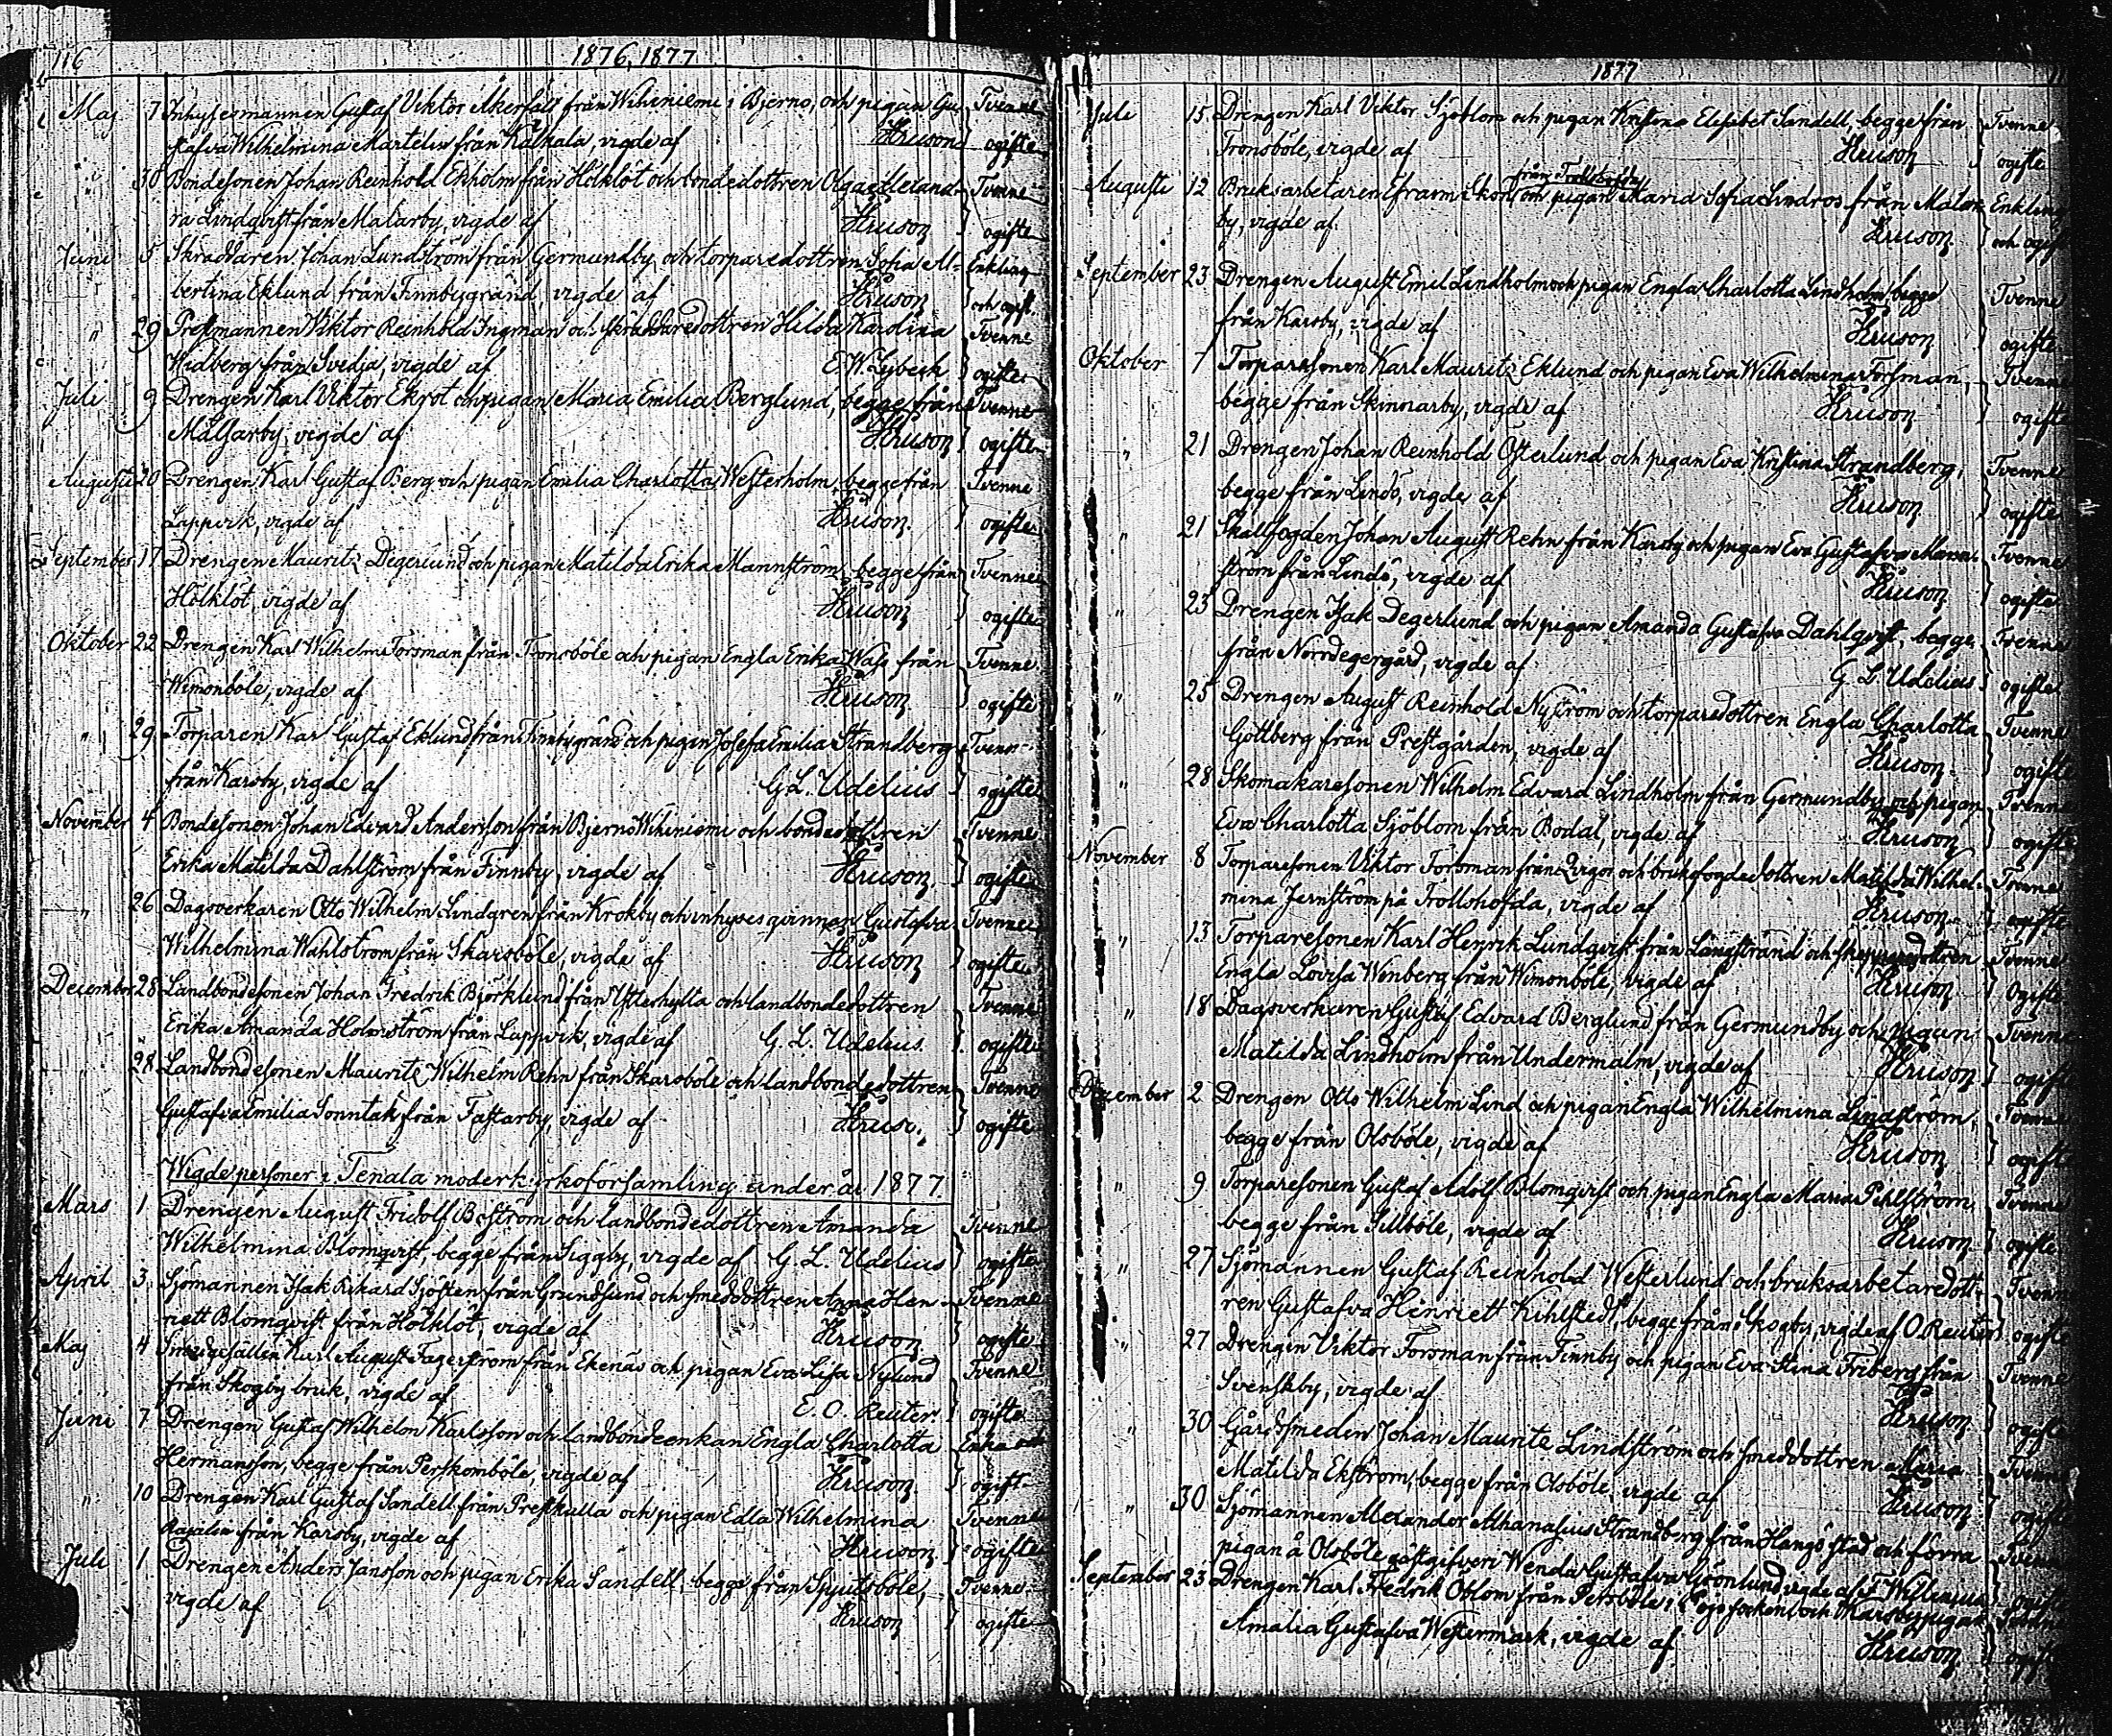 116
1876, 1877
Maj 7 Inhysesmannen Gustaf Viktor Åkerfält från Wihiniemi i Bjerno, och pigan Gu- Tvenne
stafva Wilhelmina Martelin från Kalkala, vigde af Kruson ogifte
" 30 Bondesonen Johan Reinhold Ekholm från Holklöt och bondedottren Olga Alexand- Tvenne
ra Lindqvist från Malarby, vigde af Kruson ogifte
Juni 5 Skräddaren Johan Lundström från Germundby och torparedottren Sofia Al- Enkling
bertina Eklund från Finnbygränd, vigde af Kruson och ogift
" 29 Prestmannen Viktor Reinhold Ingman och skräddaredottren Hilda Karolina Tvenne
Widberg från Svedja, vigde af E W. Lybeck ogifte
Juli 9 Drengen Karl Viktor Ekrot och pigan Maria Emilia Berglund, begge från Tvenne
Målsarby, vigde af Kruson ogifte
Augusti 20 Drengen Karl Gustaf Berg och pigan Emilia Charlotta Westerholm, begge från Tvenne
Lappvik, vigde af Kruson. ogifte
September 17 Drengen Mauritz Degerlund och pigan Matilda Erika Mannström, begge från Tvenne
Holklöt, vigde af Kruson ogifte
Oktober 22 Drengen Karl Wilhelm Forsman från Tronsböle och pigan Engla Erika Wass från Tvenne
Wimonböle, vigde af Kruson ogifte
" 29 Torparen Karl Gustaf Eklund från Finnbygränd och pigan Josefa Emilia Strandberg Tvenne
från Karsby, vigde af G. L. Udelius ogifte
November 4 Bondesonen Johan Edvard Andersson från Bjerno Wihiniemi och bondedottren Tvenne
Erika Matilda Dahlström från Finnby, vigde af Kruson. ogifte
" 26 Dagsverkaren Otto Wilhelm Lindgren från Krokby och inhyses qvinnan Gustafva Tvenne
Wilhelmina Wahlström från Skarsböle, vigde af Kruson ogifte
December 28 Landbondesonen Johan Fredrik Björklund från Ytterhylta och landbondedottren Tvenne
Erika Amanda Holmström från Lappvik, vigde af G. L. Udelius. ogifte
" 28 Landbondesonen Mauritz Wilhelm Rehn från Skarsböle och landbondedottren Tvenne
Gustafva Emilia Sonntak från Tastarby, vigde af Kruson ogifte
Wigde personer i Tenala moderkyrkoförsamling under år 1877.
Mars 1 Drengen August Fridolf Boström och landbondedottren Amanda Tvenne
Wilhelmina Blomqvist, begge från Siggby, vigde af G. L. Udelius ogifte
April 3 Sjömannen Isak Rikard Sjösten från Grundsund och smeddottren Anna Hen- Tvenne
riett Blomqvist från Holklöt, vigde af Kruson ogifte
Maj 4 Karl August Fagerström från Ekenäs och pigan Eva Lisa Nylund Tvenne
från Skogby bruk, vigde af E. O. Reuter. ogifte
Juni 7 Drengen Gustaf Wilhelm Karlsson och landbondeenkan Engla Charlotta Enka och
Hermansson, begge från Perskomböle, vigde af Kruson ogift
" 10 Drengen Karl Gustaf Sandell från Prestkulla och pigan Edla Wilhelmina Tvenne
från Karsby, vigde af Kruson ogifte
Juli 1 Drengen Anders Jansson och pigan Erika Sandell, begge från Spjutsböle, Tvenne
vigde af Kruson ogifte
1877
Juli 15 Drengen Karl Viktor Sjöblom och pigan Kristina Elisabet Sandell, begge från Tvenne
Tronsböle, vigde af Kruson ogifte
från Trollshofda
Augusti 12 Bruksarbetaren Efraim Ekors och pigan Maria Sofia Lindros från Malar- Enkling
by, vigde af Kruson och ogift
September 23 Drengen August Emil Lindholm och pigan Engla Charlotta Lindholm, begge Tvenne
från Karsby, vigde af Kruson ogifte
Oktober 7 Torparesonen Karl Mauritz Eklund och pigan Eva Wilhelmina Forsman, Tvenne
begge från Skinnarby, vigde af Kruson ogifte
" 21 Drengen Johan Reinhold Österlund och pigan Eva Kristina Strandberg, Tvenne
begge från Lindö, vigde af Kruson ogifte
" 21 Skallfogden Johan August Rehn från Karsby och pigan Eva Gustafva Mann- Tvenne
ström från Lindö, vigde af Kruson ogifte
" 25 Drengen Isak Degerlund och pigan Amanda Gustafva Dahlqvist, begge Tvenne
från Norrdegergård, vigde af G L Udelius ogifte
" 25 Drengen August Reinhold Nyström och torparedottren Engla Charlotta Tvenne
Göttberg från Prestgården, vigde af Kruson ogifte
" 28 Skomakaresonen Wilhelm Edvard Lindholm från Germundby och pigan Tvenne
Eva Charlotta Sjöblom från Bodal, vigde af Kruson ogifte
November 8 Torparesonen Viktor Forsman från Qvigos och bruksfogdedottren Matilda Wilhel- Tvenne
mina Jernström på Trollshofda, vigde af Kruson ogifte
" 13 Torparesonen Karl Henrik Lundqvist från Långstrand och skepparedottren Tvenne
Engla Lovisa Wenberg från Wimonböle, vigde af Kruson ogifte
" 18 Dagsverkaren Gustaf Edvard Berglund från Germundby och pigan Tvenne
Matilda Lindholm från Undermalm, vigde af Kruson ogifte
December 2 Drengen Otto Wilhelm Lind och pigan Engla Wilhelmina Lindström, Tvenne
begge från Olsböle, vigde af Kruson ogifte
" 9 Torparesonen Gustaf Adolf Blomqvist och pigan Engla Maria Pihlström, Tvenne
begge från Sillböle, vigde af Kruson ogifte
" 27 Sjömannen Gustaf Reinhold Westerlund och bruksarbetaredott- Tvenne
ren Gustafva Henriett Kihlstedt, begge från Skogby, vigde af O. Reuter ogifte
" 27 Drengen Viktor Forsman från Finnby och pigan Eva Stina Friberg från Tvenne
Svenskby, vigde af Kruson ogifte
" 30 Gårdssmeden Johan Mauritz Lindström och smeddottren Maria Tvenne
Matilda Ekström, begge från Olsböle, vigde af Kruson ogifte
" 30 Sjömannen Alexander Athanasius Strandberg från Hangö stad och förra Tvenne
pigan å Olsböle gästgifveri Wenda Gustafva Grönlund vigde af F. ogifte
September 23 Drengen Karl Fredrik Öblom från Petsböle i Pojo socken, och Karsby pigan
Amalia Gustafva Westermark, vigde af Kruson ogifte